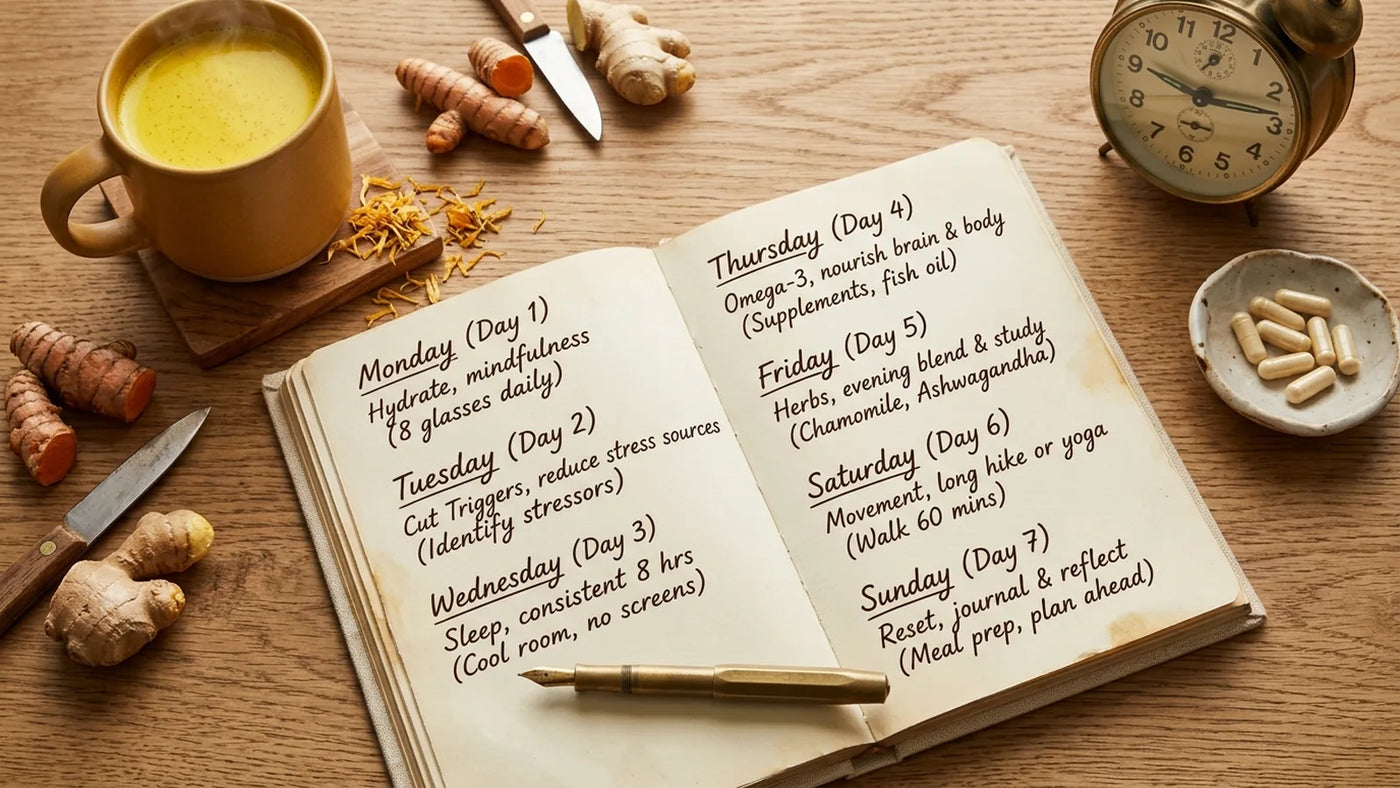 Monday (Day 1)
Hydrate, mindfulness
(8 glasses daily)
Tuesday (Day 2)
Cut Triggers, reduce stress sources
(Identify stressors)
Wednesday (Day 3)
Sleep, consistent 8 hrs
(Cool room, no screens)
Thursday (Day 4)
Omega-3, nourish brain & body
(Supplements, fish oil)
Friday (Day 5)
Herbs, evening blend & study
(Chamomile, Ashwagandha)
Saturday (Day 6)
Movement, long hike or yoga
(Walk 60 mins)
Sunday (Day 7)
Reset, journal & reflect
(Meal prep, plan ahead)
12
1
2
3
4
5
6
7
8
9
10
11